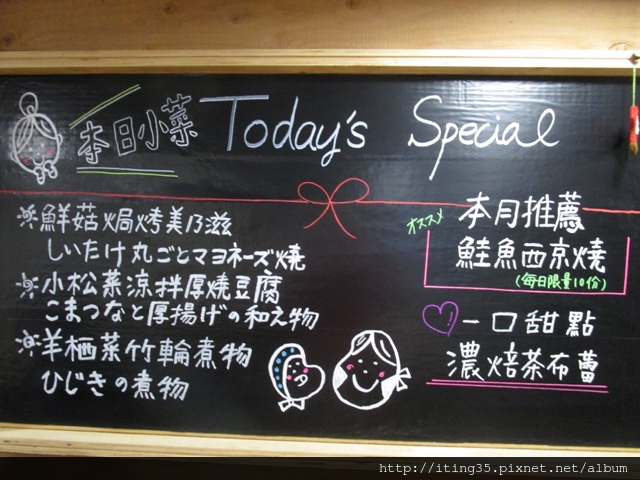 本日小菜 Today's Special
※鮮菇焗烤美乃滋
しいたけ丸ごとマヨネーズ焼
※小松菜涼拌厚燒豆腐
こまつなと厚揚げの和え物
※羊栖菜竹輪煮物
ひじきの煮物
オススメ 本月推薦
鮭魚西京燒
(每日限量10份)
一口甜點
濃焙茶布蕾
http://iting35.pixnet.net/album